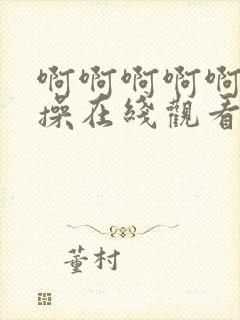 啊啊啊啊啊
操在綫觀看
董村